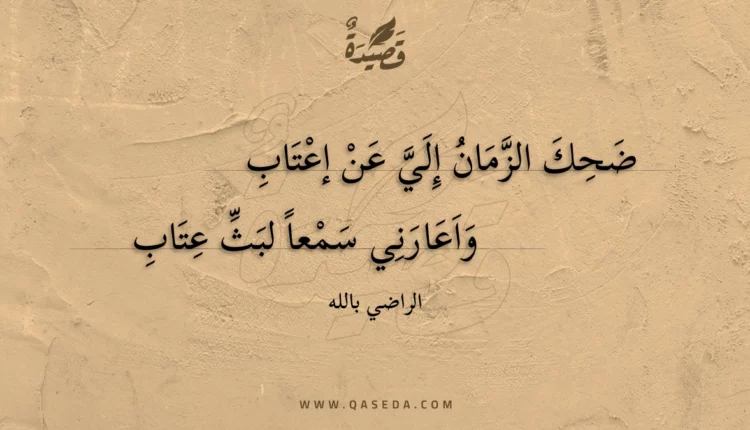 قَصِيدَةٌ
ضَحِكَ الزَّمَانُ إِلَيَّ عَنْ إعْتَابِ
وَاَعَارَنِي سَمْعاً لبَثِّ عِتَابِ
الراضي بالله
WWW.QASEDA.COM